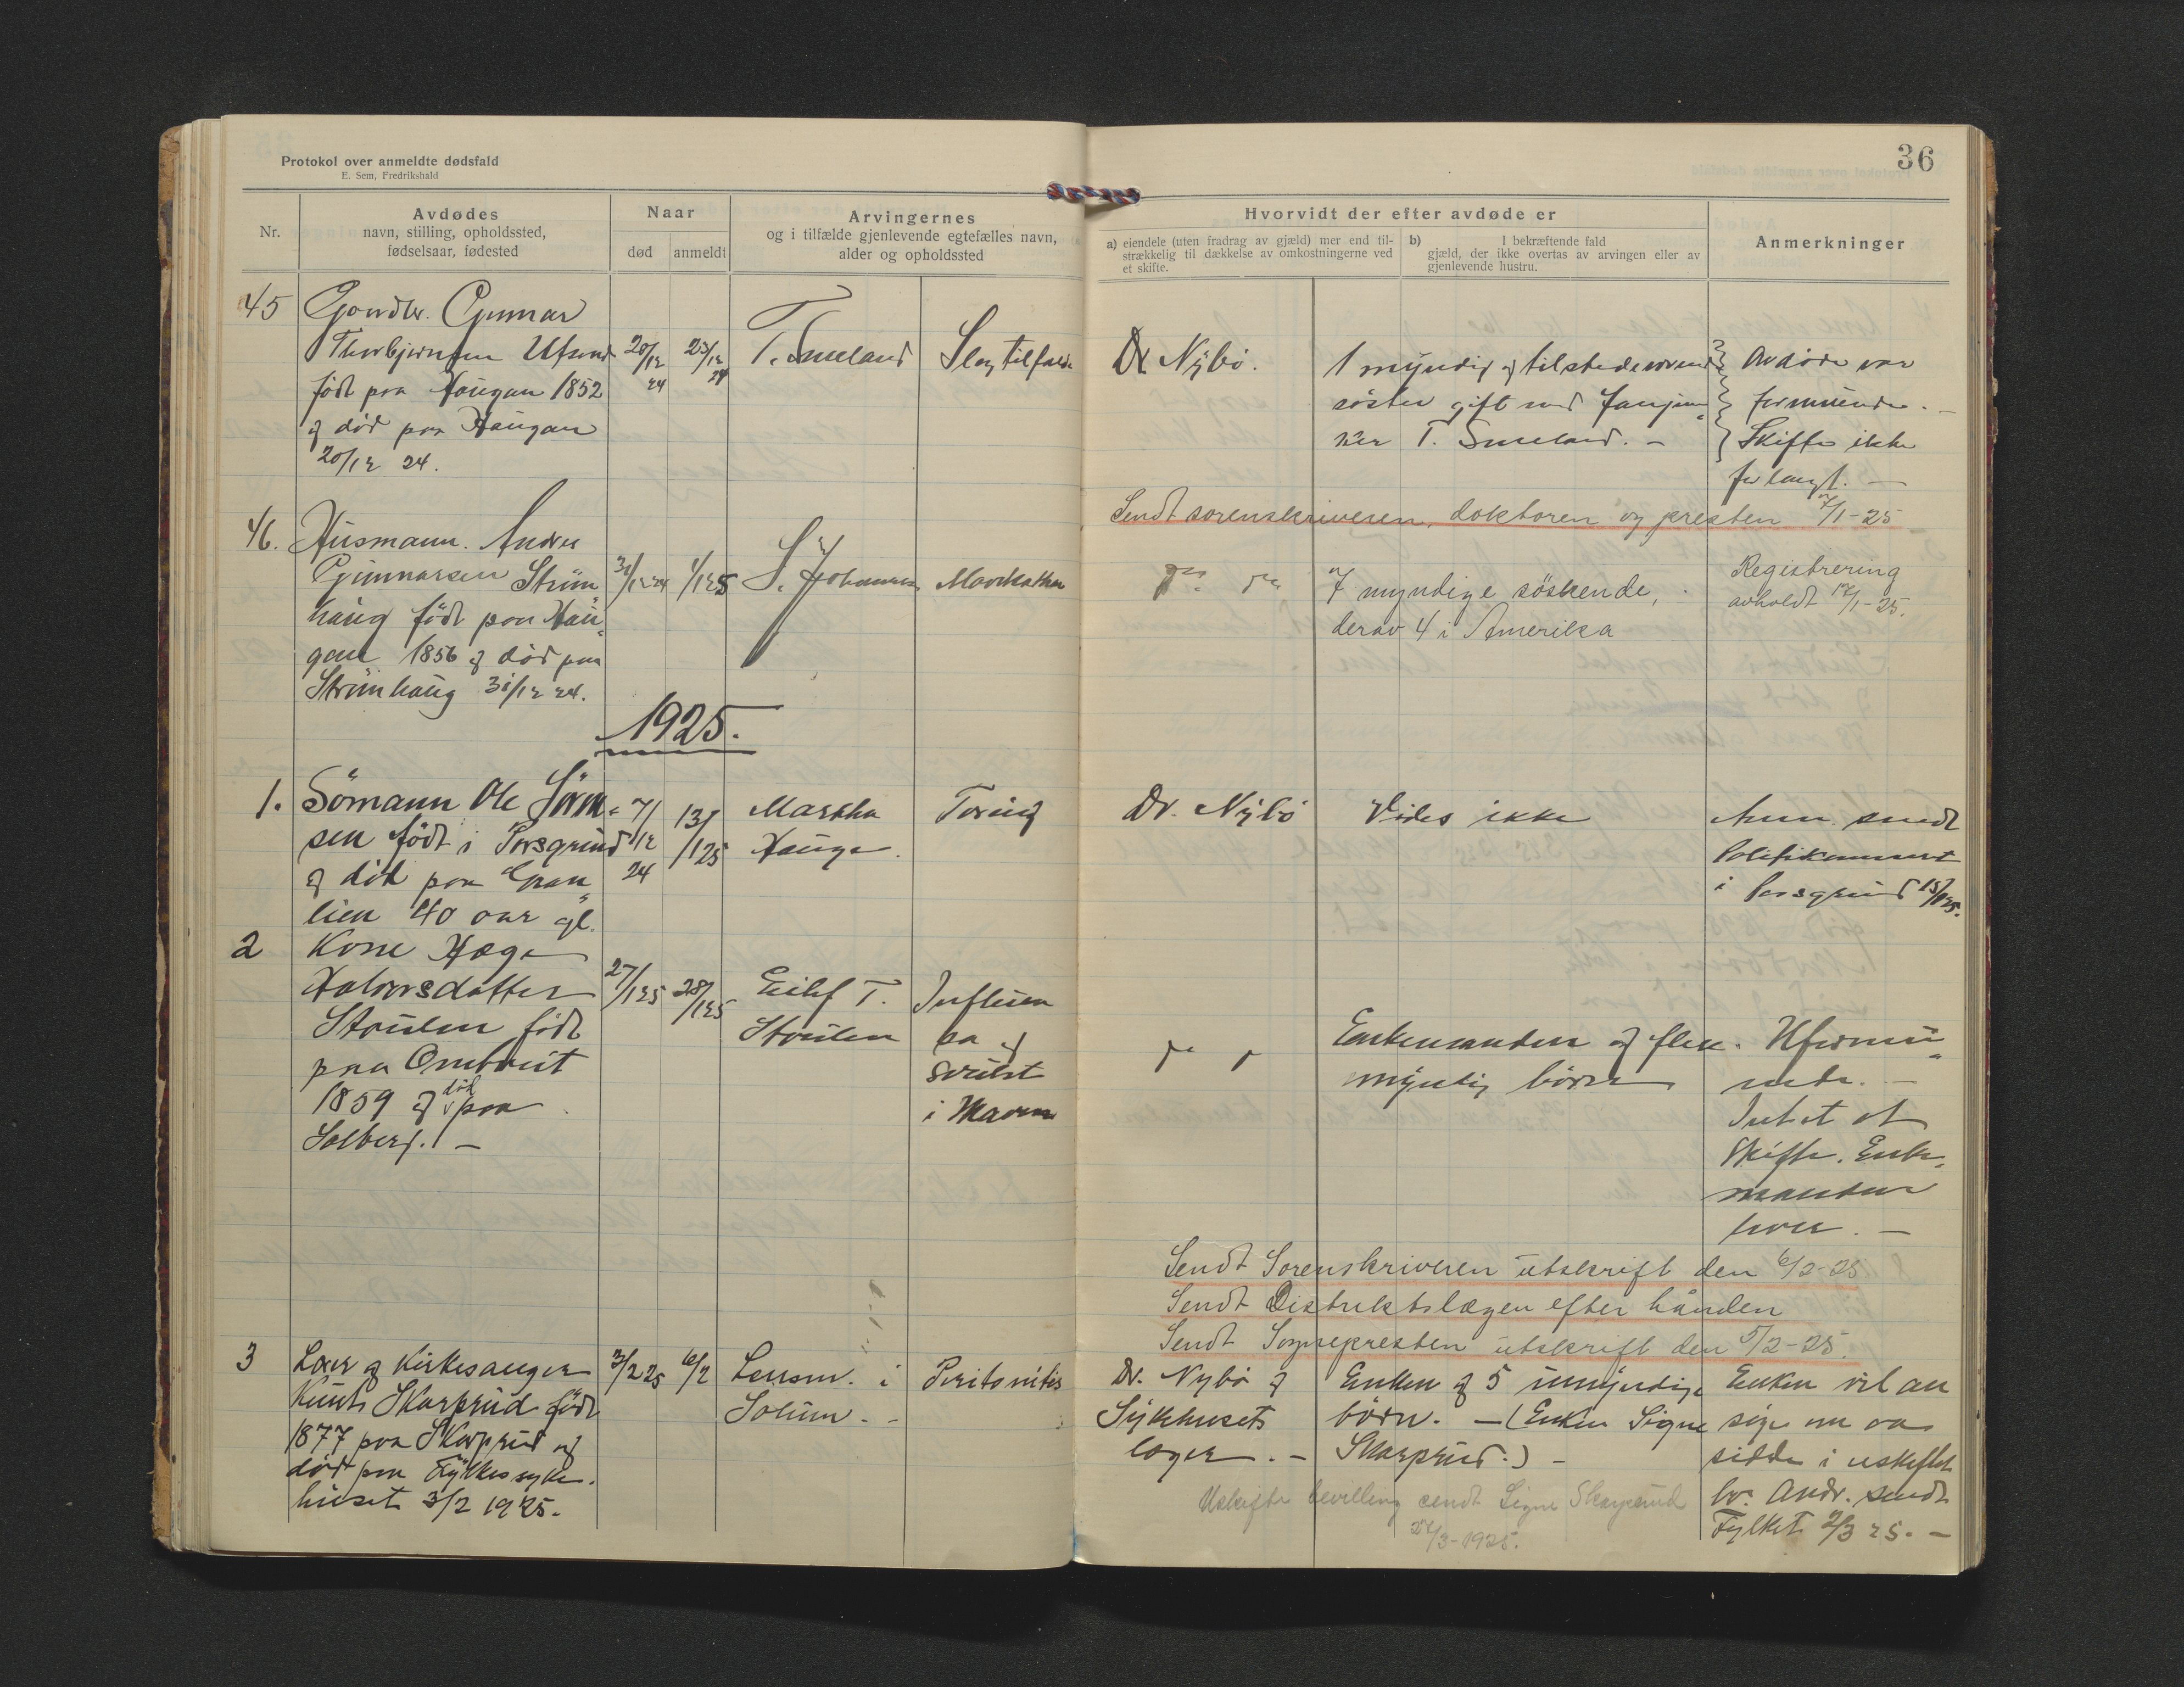 Protokol over anmeldte dødsfald
E. Sem, Fredrikshald
36
Nr.
Avdødes
navn, stilling, opholdssted,
fødselsaar, fødested
Naar
død
anmeldt
Arvingernes
og i tilfælde gjenlevende egtefælles navn,
alder og opholdssted
Hvorvidt der efter avdøde er
a) eiendele (uten fradrag av gjæld) mer end til-
strækkelig til dækkelse av omkostningerne ved
et skifte.
b) I bekræftende fald
gjæld, der ikke overtas av arvingen eller av
gjenlevende hustru.
Anmerkninger
45 Gunnar
Thorbjørnsen
født paa Haugan 1852
og död paa Haugan
20/12 24.
20/12 24
23/12 24
T. Smeland
Slagtilfælde
Dr Nybö.
1 myndig og tilstedeværende
söster gift med
T. Smeland. –
Avdöde var
formuende. –
Skifte ikke
forlangt. –
Sendt sorenskriveren, doktoren og presten 7/1-25
46. Husmann. Anders
Gunnarsen Strüm-
haüg födt paa Haü-
gan 1856 og död paa
Strümhaüg 31/12 24.
31/12 24
1/1 25
S. Johannesen
Mavekatharr
7 myndige söskende,
derav 4 i Amerika
Registrering
avholdt 17/1-25.
1925.
1. Sömann Ole Sörn-
sen födt i Porsgrund
og död paa Gran-
lien 40 aar gl.
7/12 24
13/1 25
Martha
Hauge.
Toring
Dr. Nybö
Vides ikke
Anm. sendt
Politikammeret
i Porsgrund 15/1 25.
2 Kone Hæge
Halvorsdatter
Stoülen födt
paa Ombneit
1859 og död paa
Solberg. –
27/1 25
28/1 25
Eilef T.
Stoülen
Influen
sa og
svülst
i Maven
Enkemanden og flere
myndig börn
Uformü-
ende. –
Intet at
Skifte. Enke-
manden
–
Sendt Sorenskriveren utskrift den 6/2-25
Sendt Distriktslægen efter hånden
Sendt Sognepresten utskrift den 5/2-25.
3 Lærer og Kirkesanger
Knut Skarprüd födt
1877 paa Skarprüd og
död paa Fylkessyke-
hüset 3/2 1925.
3/2 25
6/2
Lensm. i
Solüm. –
Peritonitis
Dr. Nybö og
Sykehusets
læger. –
Enken og 5 ümyndige
börn. – (Enken Signe
Skarprüd.) –
Enken vil an
söge om aa
sidde i uskiftet
bo. Andr. sendt
Fylket 2/3 25. –
Uskiftebevilling sendt Signe Skarprud
24/3-1925.